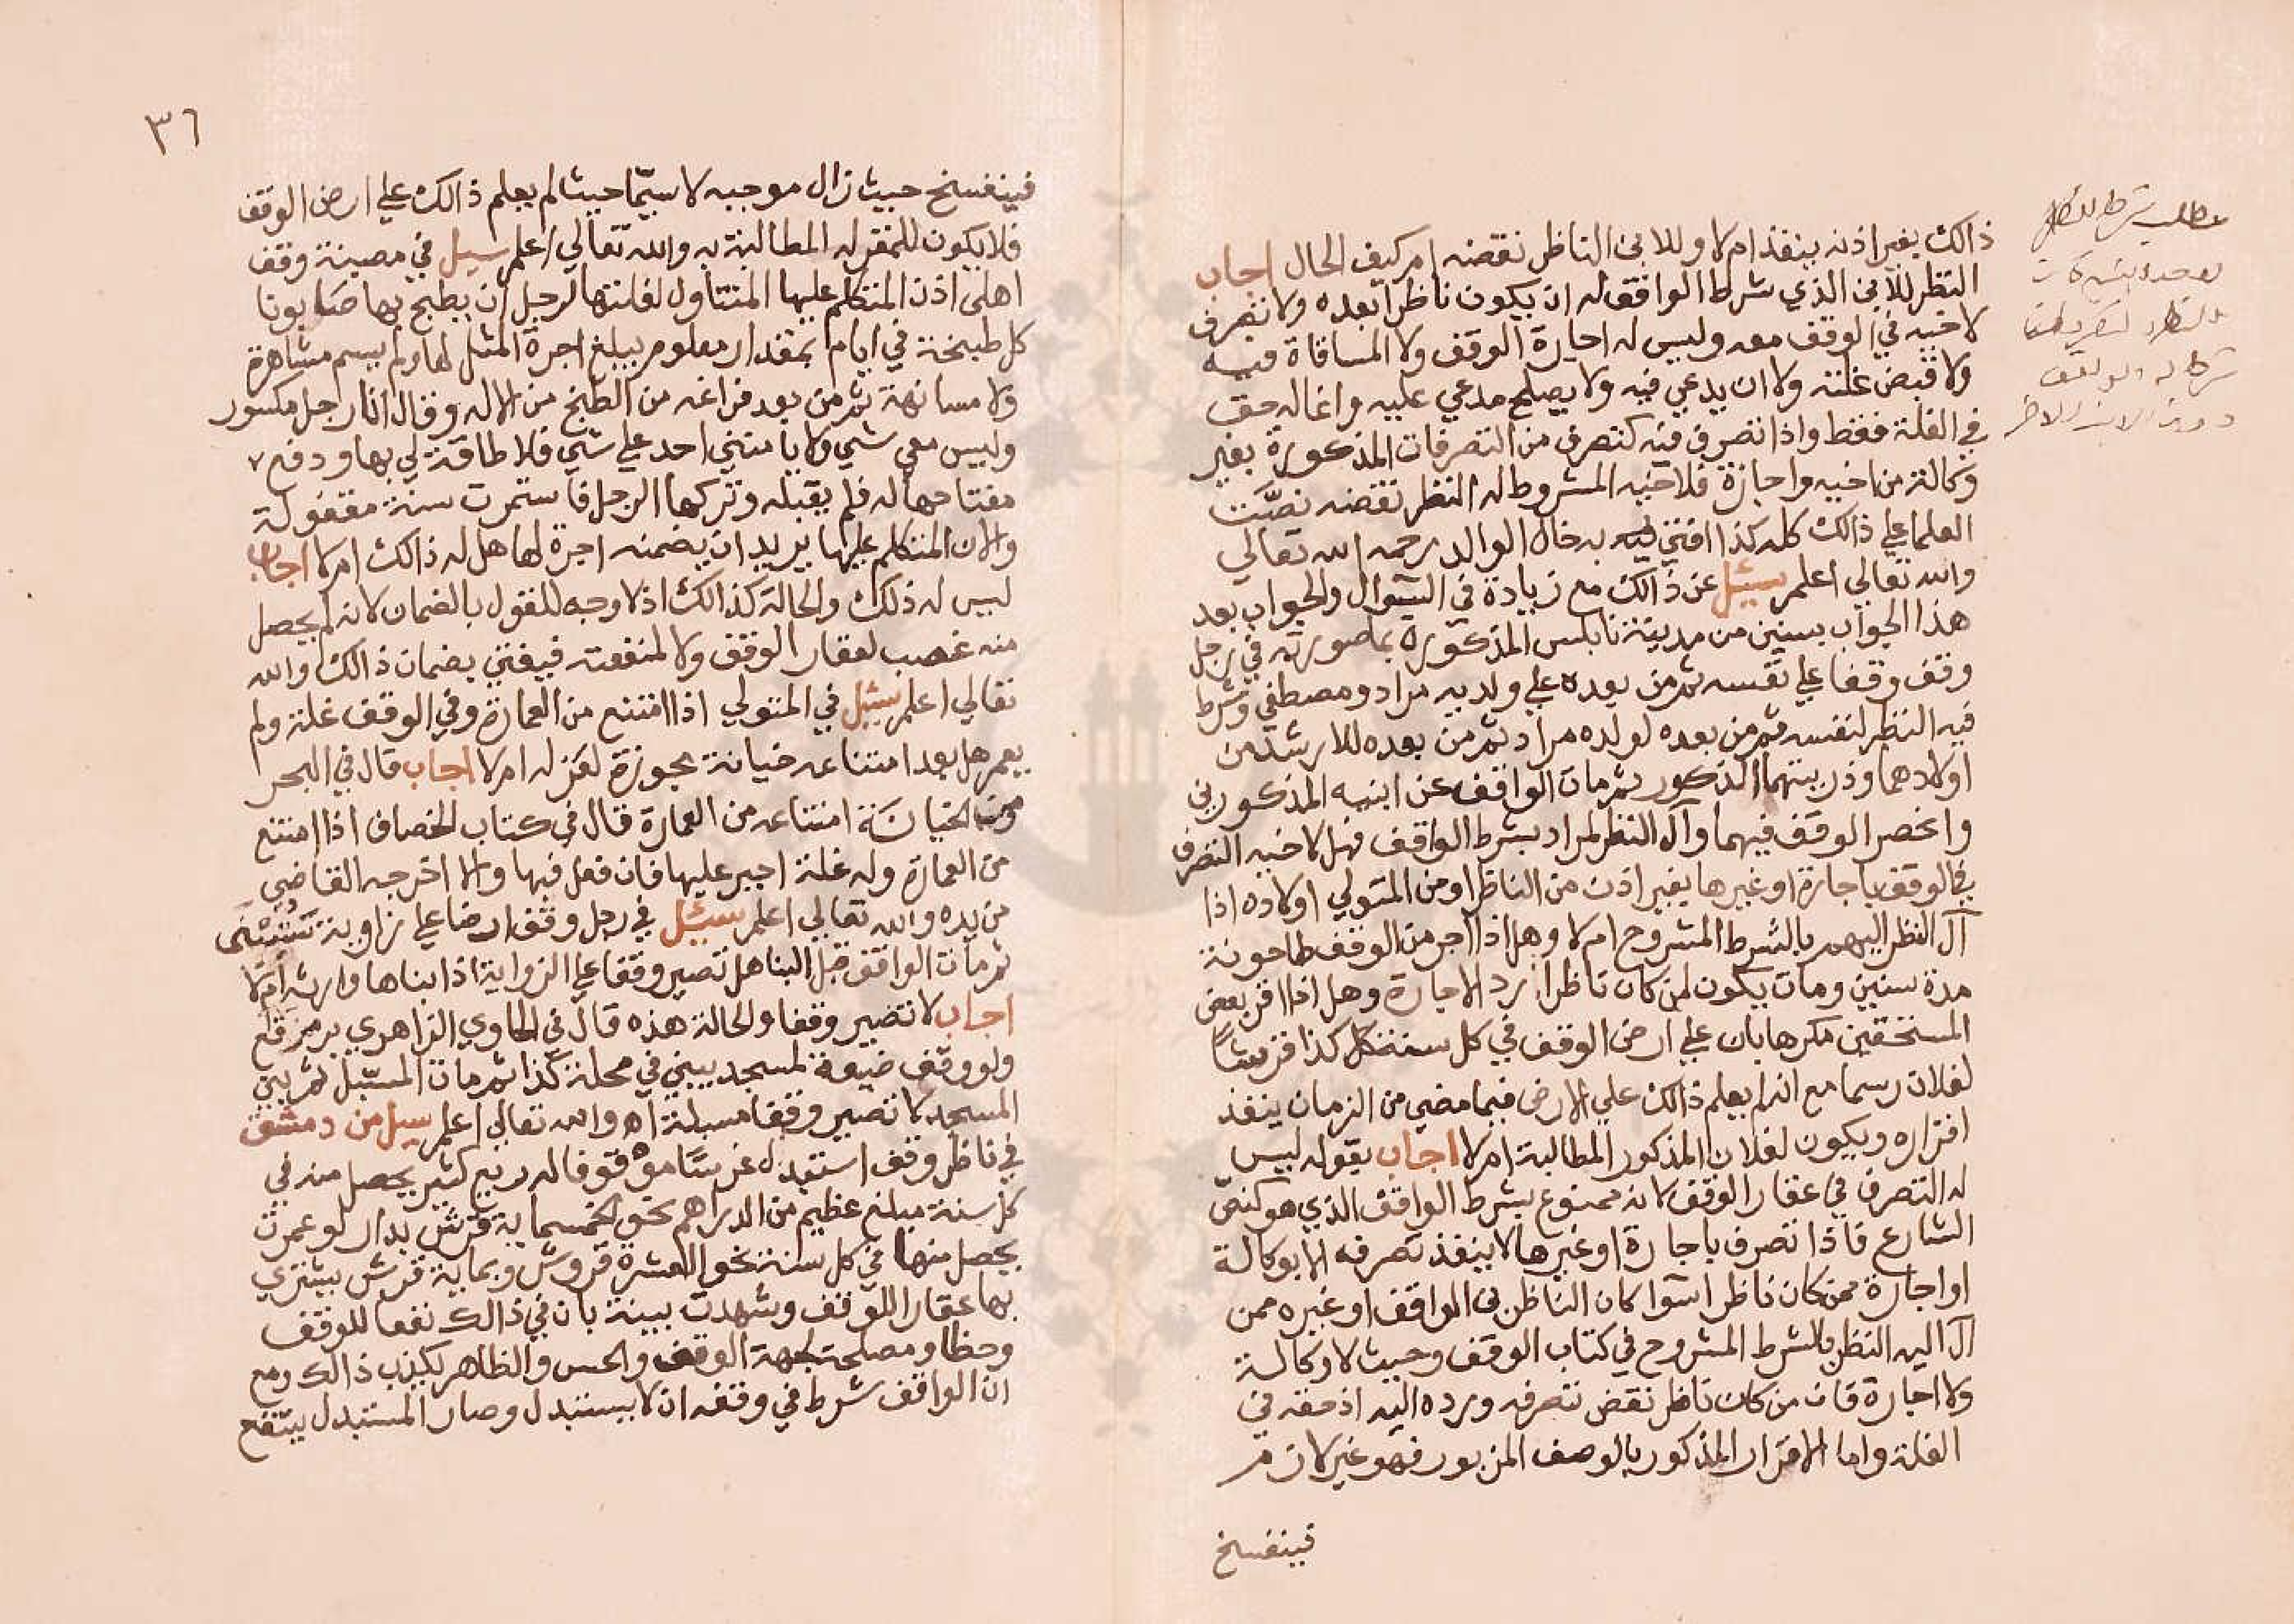 ذالك بغير اذنه ينفذ ام لا وللابن الناظر نقضه ام كيف الحال اجاب
النظر للابن الذي شرط الواقف له ان يكون ناظرا بعده ولا تصرف
لاخيه في الوقف معه وليس له اجارة الوقف ولا المساقاة فيه
ولا قبض غلته ولا ان يدعي فيه ولا يصلح مدعي عليه وانما له حق
في الغلة فقط واذا تصرف فيه كتصرف من التصرفات المذكورة بغير
وكالة من اخيه واجازة فلاخيه المشروط له النظر نقضه نصّت
العلما علي ذالك كله كذا افتي به خال الوالد رحمه الله تعالي
والله تعالي اعلم سئيل عن ذالك مع زيادة في السّوال والجواب بعد
هذا الجواب بسنين من مدينة نابلس المذكورة بما صورته في رجل
وقف وقفا علي نفسه ثم من بعده علي ولديه مراد ومصطفي وشرط
فيه النظر لنفسه ثم من بعده لولده مراد ثم من بعده للارشد من
اولادهما وذريتهما الذكور ثم مات الواقف عن ابنيه المذكورين
وانحصر الوقف فيهما وآل النظر لمراد بشرط الواقف فهل لاخيه التصرف
في الوقف باجارة او غيرها بغير اذن من الناظر او من المتولي اولاده اذا
آل النظر اليهم بالشرط المشروح ام لا وهل اذا اجر من الوقف طاحونة
مدة سنين ومات يكون لمن كان ناظرا رد الاجارة وهل اذا اقر بعض
المستحقين مكرها بان علي ارض الوقف في كل سنة كل كذا قرشاً
لفلان رسما مع انه لم يعلم ذالك علي الارض فيما مضي من الزمان ينفذ
اقراره ويكون لفلان المذكور المطالبة ام لا اجاب بقوله ليس
له التصرف في عقار الوقف لانه ممنوع بشرط الواقف الذي هو كنصّ
الشارع فاذا تصرف باجارة او غيرها لا ينفذ تصرفه الا بوكالة
او اجازة ممن كان ناظرا سوآ كان الناظر بن الواقف او غيره ممن
آل اليه النظر بالشرط المشروح في كتاب الوقف وحيث لا وكالة
ولا اجازة فان من كان ناظر نقض تصرفه ورده اليه اذ حقه في
الغلة واما الاقرار المذكور بالوصف المزبور فهو غير لازم
فينفسخ
مطلب شرط النظر
شرط له الواقف
دون الابن الاخر
٣٦
فينفسخ حيث زال موجبه لا سيّما حيث لم يعلم ذالك علي ارض الوقف
فلا يكون للمقر له المطالبة به والله تعالي اعلم سيل في مصبنة وقف
اهلي اذن المتكلم عليها المتناول لغلتها لرجل ان يطبخ بها صابونا
كل طبخة في ايام بمقدار معلوم يبلغ اجرة المثل لها ولم يسم مشاهرة
ولا مسانهة ثم من بعد فراغه من الطبخ من الاله وقال انا رجل مكسور
وليس معي شي ولا يامنني احد علي شي فلا طاقة لي بها ودفع
مفتاحها له فلم يقبله وتركها الرجل فاستمرت سنة مقفولة
والان المتكلم عليها يريد ان يضمنه اجرة لها هل له ذالك ام لا اجاب
ليس له ذلك والحالة كذالك اذ لا وجه للقول بالضمان لانه لم يحصل
منه غصب لعقار الوقف ولا لمنفعته فيفتي بضمان ذالك والله
تعالي اعلم سئيل في المتولي اذا امتنع من العمارة وفي الوقف غلة ولم
يعمر هل يعد امتناعه خيانة مجوزة لعزله ام لا اجاب قال في البحر
ومن الخيانة امتناعه من العمارة قال في كتاب الخصاف اذا امتنع
من العمارة وله غلة اجبر عليها فان فعل فبها والا اخرجه القاضي
من يده والله تعالي اعلم سئيل في رجل وقف ارضا علي زاوية سَتُبْنَى
ثم مات الواقف قبل البنا هل تصير وقفا علي الزواية اذا بناها وارثه ام لا
اجاب لا تصير وقفا والحالة هذه قال في الحاوي الزاهدي برمز قع
ولو وقف ضيعة لمسجد يبني في محلة كذا ثم مات المسّبل ثم بني
المسجد لا تصير وقفا مسبلة اه والله تعالي اعلم سيل من دمشق
في ناظر وقف استبدل غرسًا موقوفا له ريع كثير يحصل منه في
كل سنة مبلغ عظيم من الدراهم نحو الخمسماية قرش بدار لو عمرت
يحصل منها في كل سنة نحو العشرة قروش وبماية قرش يشتري
بها عقارا للوقف وشهدت بينة بان في ذالك نفعا للوقف
وحظا ومصلحة لجهة الوقف والحس والظاهر يكذب ذالك ومع
ان الواقف شرط في وقفه ان لا يستبدل وصار المستبدل ينتفع